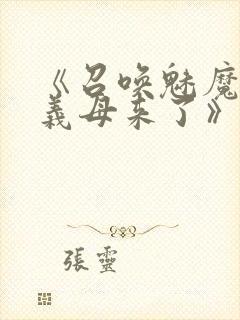 《召唤魅魔
義母来了》
張靈